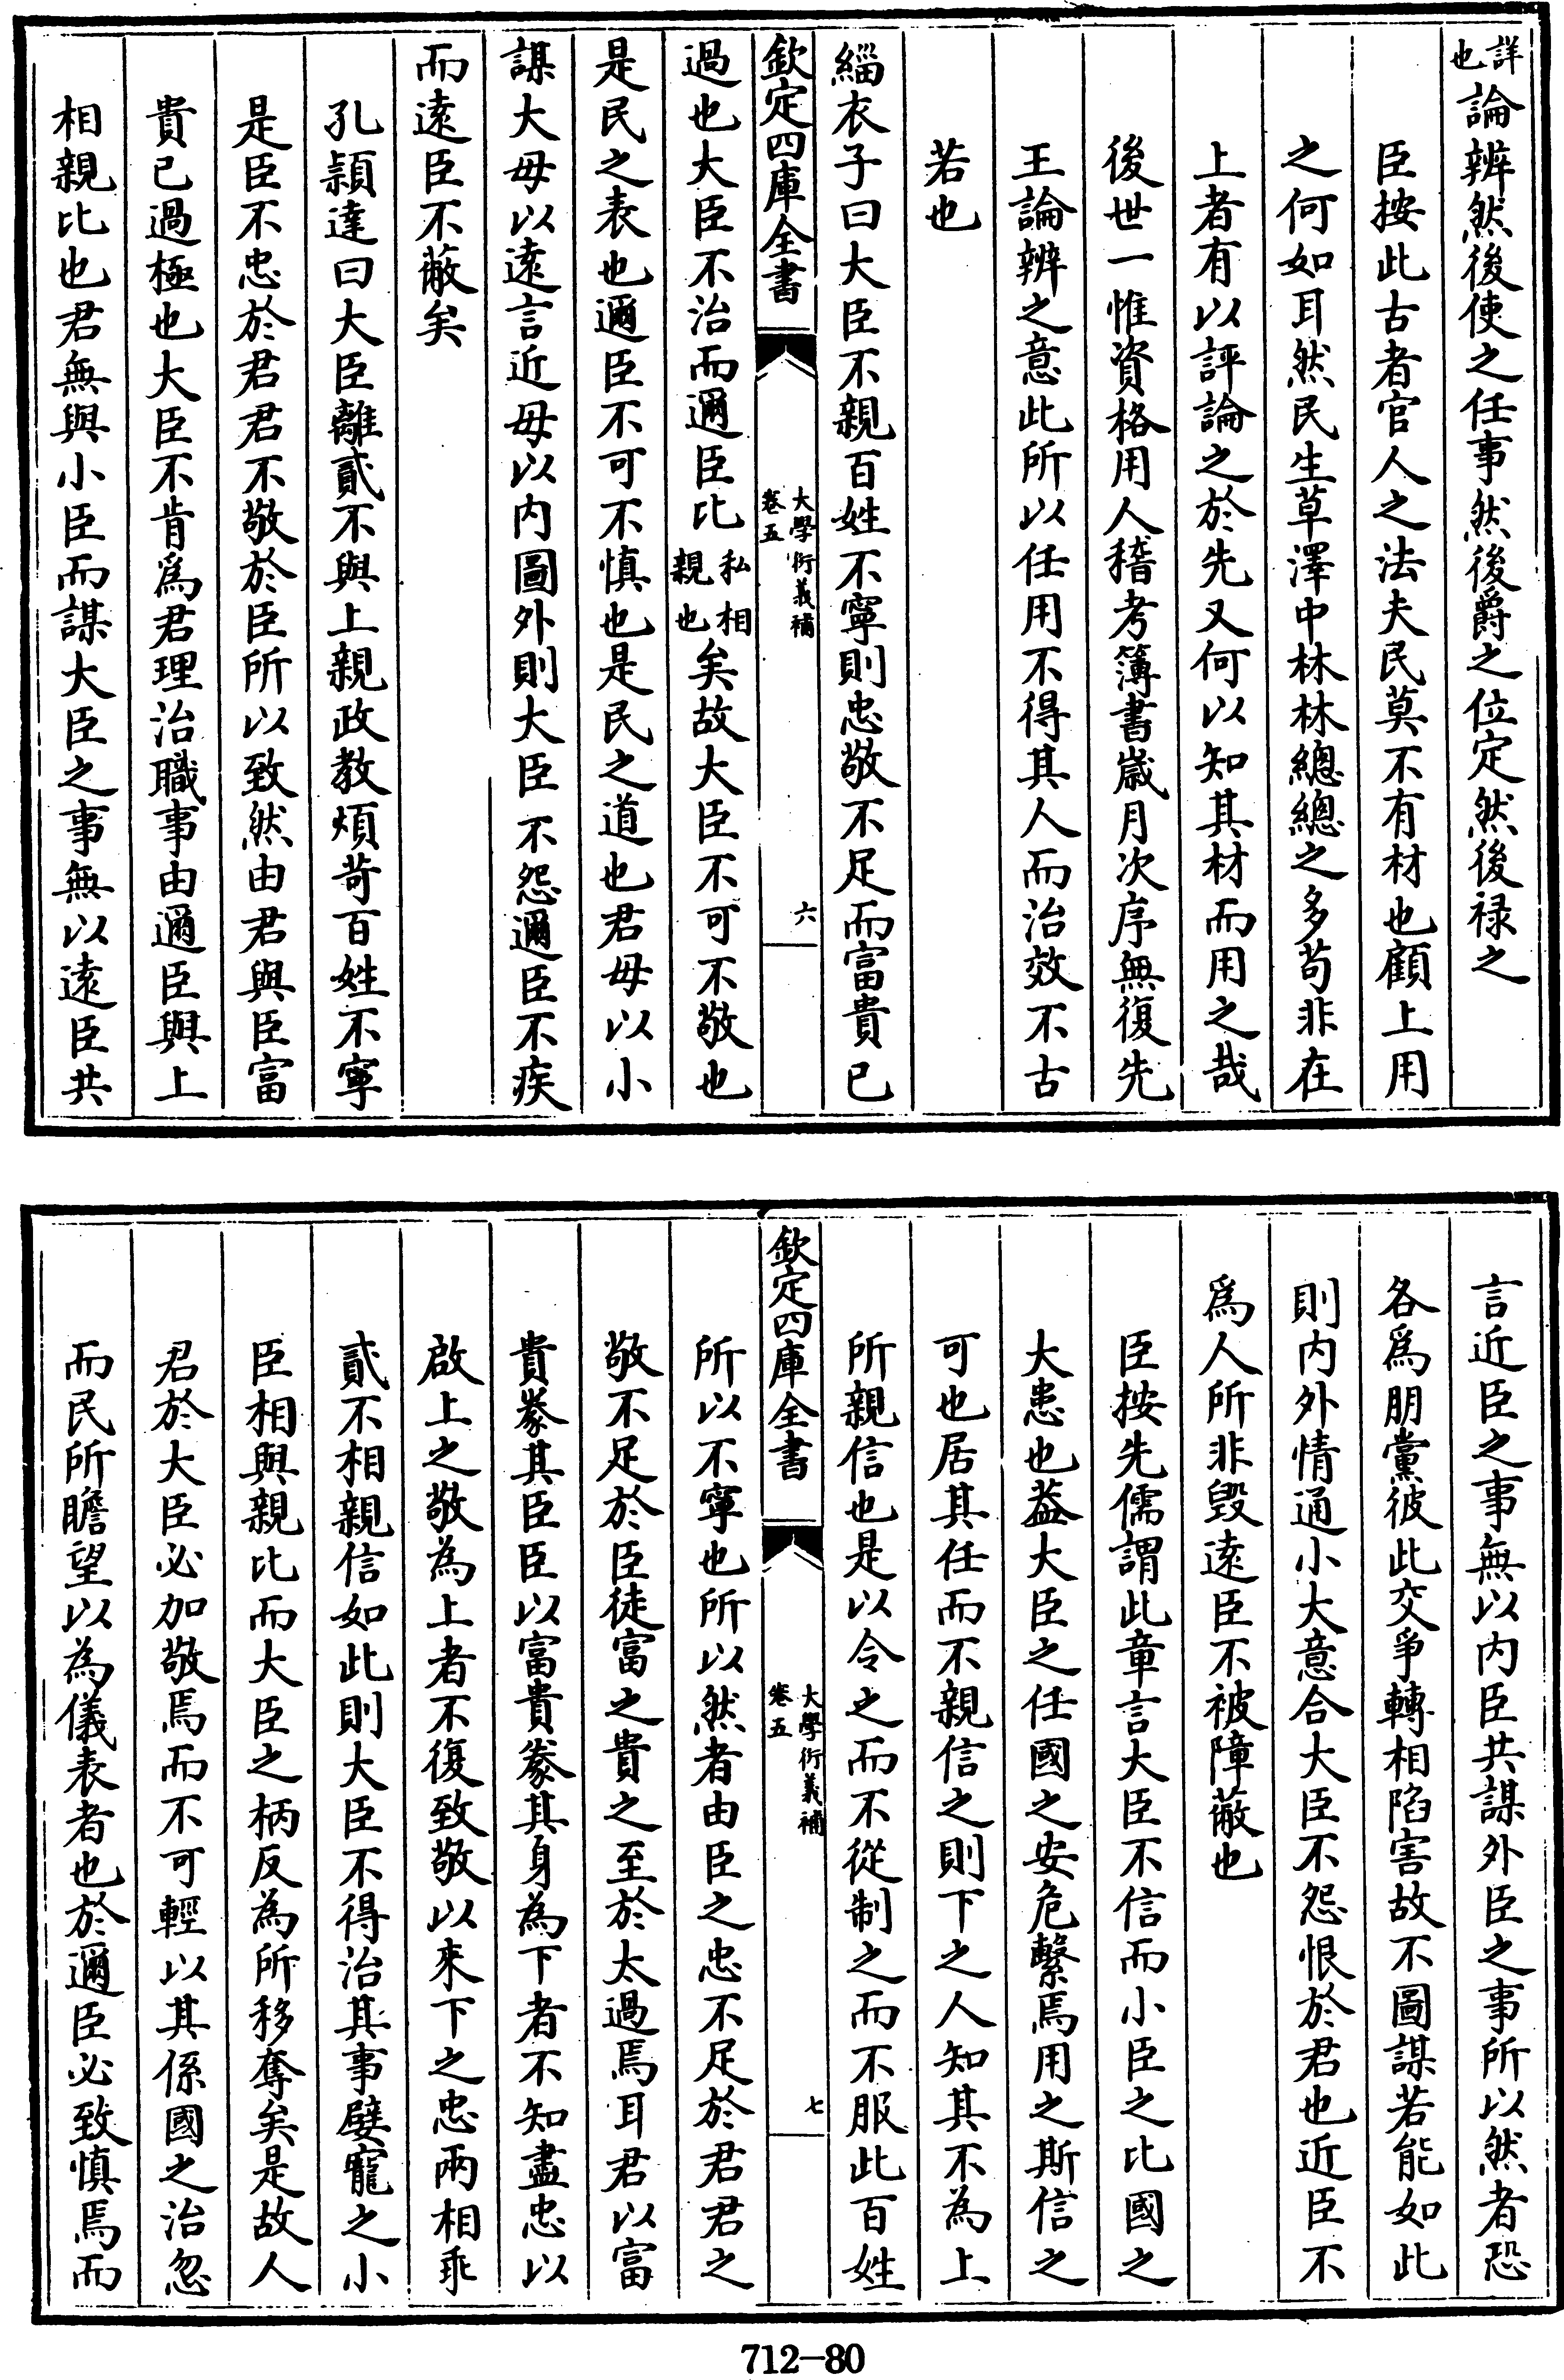 詳也論辨然後使之任事然後爵之位定然後禄之
臣按此古者官人之法夫民莫不有材也顧上用
之何如耳然民生草澤中林林總總之多苟非在
上者有以評論之於先又何以知其材而用之哉
後世一惟資格用人稽考簿書歲月次序無復先
王論辨之意此所以任用不得其人而治效不古
若也
緇衣子曰大臣不親百姓不寧則忠敬不足而富貴已
欽定四庫全書
大學衍義補
卷五
六
過也大臣不治而邇臣比私相親也矣故大臣不可不敬也
是民之表也邇臣不可不慎也是民之道也君毋以小
謀大毋以遠言近毋以内圖外則大臣不怨邇臣不疾
而遠臣不蔽矣
孔頴達曰大臣離貳不與上親政教煩苛百姓不寧
是臣不忠於君君不敬於臣所以致然由君與臣富
貴已過極也大臣不肯爲君理治職事由邇臣與上
相親比也君無與小臣而謀大臣之事無以遠臣共
言近臣之事無以内臣共謀外臣之事所以然者恐
各爲朋黨彼此交爭轉相陷害故不圖謀若能如此
則内外情通小大意合大臣不怨恨於君也近臣不
爲人所非毀遠臣不被障蔽也
臣按先儒謂此章言大臣不信而小臣之比國之
大患也葢大臣之任國之安危繫焉用之斯信之
可也居其任而不親信之則下之人知其不為上
所親信也是以令之而不從制之而不服此百姓
欽定四庫全書
大學衍義補
卷五
七
所以不寧也所以然者由臣之忠不足於君君之
敬不足於臣徒富之貴之至於太過焉耳君以富
貴豢其臣臣以富貴豢其身為下者不知盡忠以
啟上之敬為上者不復致敬以來下之忠兩相乖
貳不相親信如此則大臣不得治其事嬖寵之小
臣相與親比而大臣之柄反為所移奪矣是故人
君於大臣必加敬焉而不可輕以其係國之治忽
而民所瞻望以為儀表者也於邇臣必致慎焉而
712-80